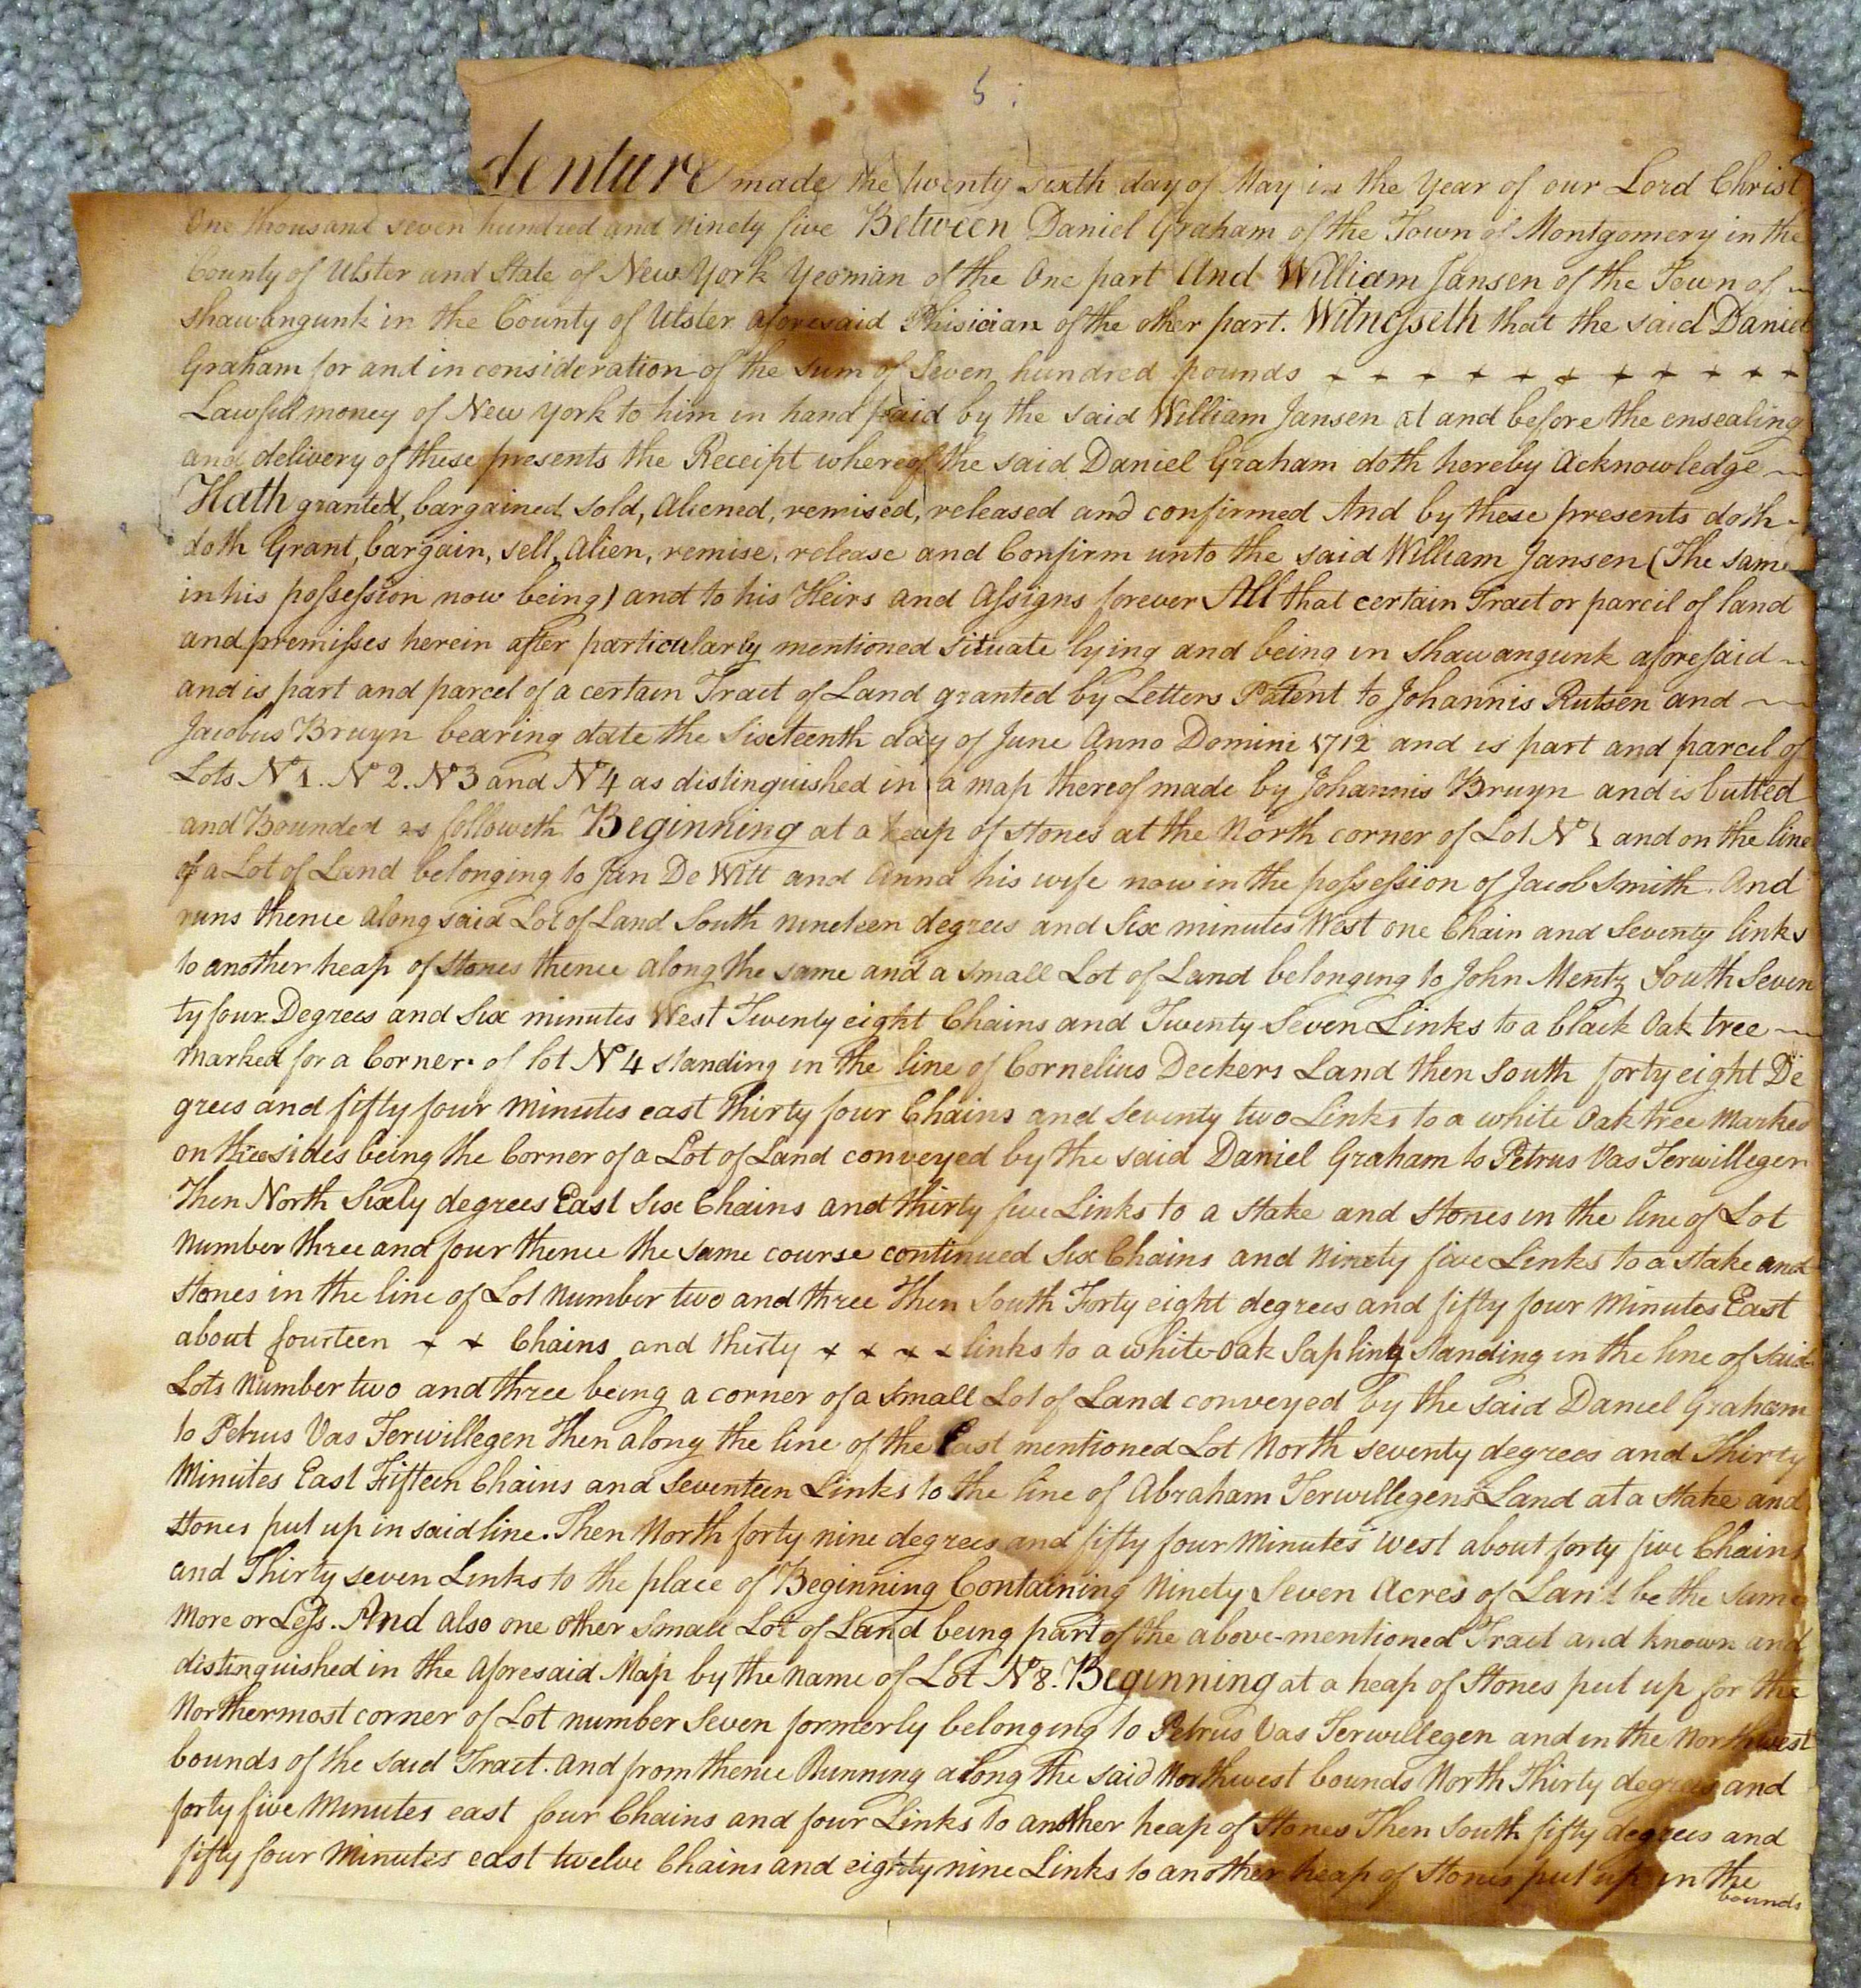 5
denture made the twenty sixth day of May in the Year of our Lord Christ
One thousand seven hundred and Ninety five Between Daniel Graham of the Town of Montgomery in the
County of Ulster and State of New York Yeoman of the One part And William Jansen of the Town of
Shawangunk in the County of Ulster aforesaid Phisician of the other part. Witnesseth that the said Daniel
Graham for and in consideration of the sum of Seven hundred pounds + + + + + + + + + + +
Lawfull money of New York to him in hand paid by the said William Jansen at and before the ensealing
and delivery of these presents the Receipt whereof the said Daniel Graham doth hereby Acknowledge
Hath granted, bargained, sold, aliened, remised, released and confirmed And by these presents doth
doth Grant, bargain, sell, Alien, remise, release and Confirm unto the said William Jansen (The same
in his possession now being) and to his Heirs and Assigns forever All that certain Tract or parcil of land
and premisses herein after particularly mentioned Situate lying and being in Shawangunk aforesaid
and is part and parcel of a certain Tract of Land granted by Letters Patent to Johannis Rutsen and
Jacobus Bruyn bearing date the Sixteenth day of June Anno Domini 1712 and is part and parcel of
Lots No 1. No 2. No 3 and No 4 as distinguished in a map thereof made by Johannis Bruyn and is butted
and Bounded as followeth Beginning at a heap of stones at the North corner of Lot No 1 and on the line
of a Lot of Land belonging to Jan De Witt and Anna his wife now in the possession of Jacob Smith. And
runs thence along said Lot of Land South nineteen degrees and Six minutes West one Chain and Seventy links
to another heap of stones thence along the same and a small Lot of Land belonging to John Mentz South Seven
ty four Degrees and Six minutes West Twenty eight Chains and Twenty Seven Links to a black Oak tree
marked for a Corner of lot No 4 standing in the line of Cornelius Deckers Land then South forty eight De
grees and fifty four Minutes east Thirty four Chains and Seventy two Links to a white Oak tree Marked
on three sides being the Corner of a Lot of Land conveyed by the said Daniel Graham to Petrus Vas Terwilleger
Then North Sixty degrees East Six Chains and thirty five Links to a Stake and Stones in the line of Lot
Number three and four thence the same course continued Six Chains and Ninety five Links to a stake and
Stones in the line of Lot Number two and three Then South Forty eight degrees and fifty four Minutes East
about fourteen + + Chains and thirty + + + + links to a white-oak Sapling Standing in the line of said
Lots Number two and three being a corner of a small Lot of Land conveyed by the said Daniel Graham
to Petrus Vas Terwillegen Then along the line of the Last mentioned Lot North seventy degrees and Thirty
Minutes East Fifteen Chains and Seventeen Links to the line of Abraham Terwillegens Land at a stake and
stones put up in said line. Then North forty nine degrees and fifty four Minutes west about forty five Chains
and Thirty seven Links to the place of Beginning Containing Ninety Seven Acres of Land be the same
More or Less. And also one other Small Lot of Land being part of the above-mentioned Tract and known and
distinguished in the Aforesaid Map by the Name of Lot No 8. Beginning at a heap of Stones put up for the
Northermost corner of Lot number Seven formerly belonging to Petrus Vas Terwillegen and in the Northwest
bounds of the said Tract. and from thence Running along the said Northwest bounds North Thirty degrees and
forty five Minutes east four Chains and four Links to another heap of Stones Then South fifty degrees and
fifty four Minutes east twelve Chains and eighty nine Links to another heap of Stones put up in the
bounds